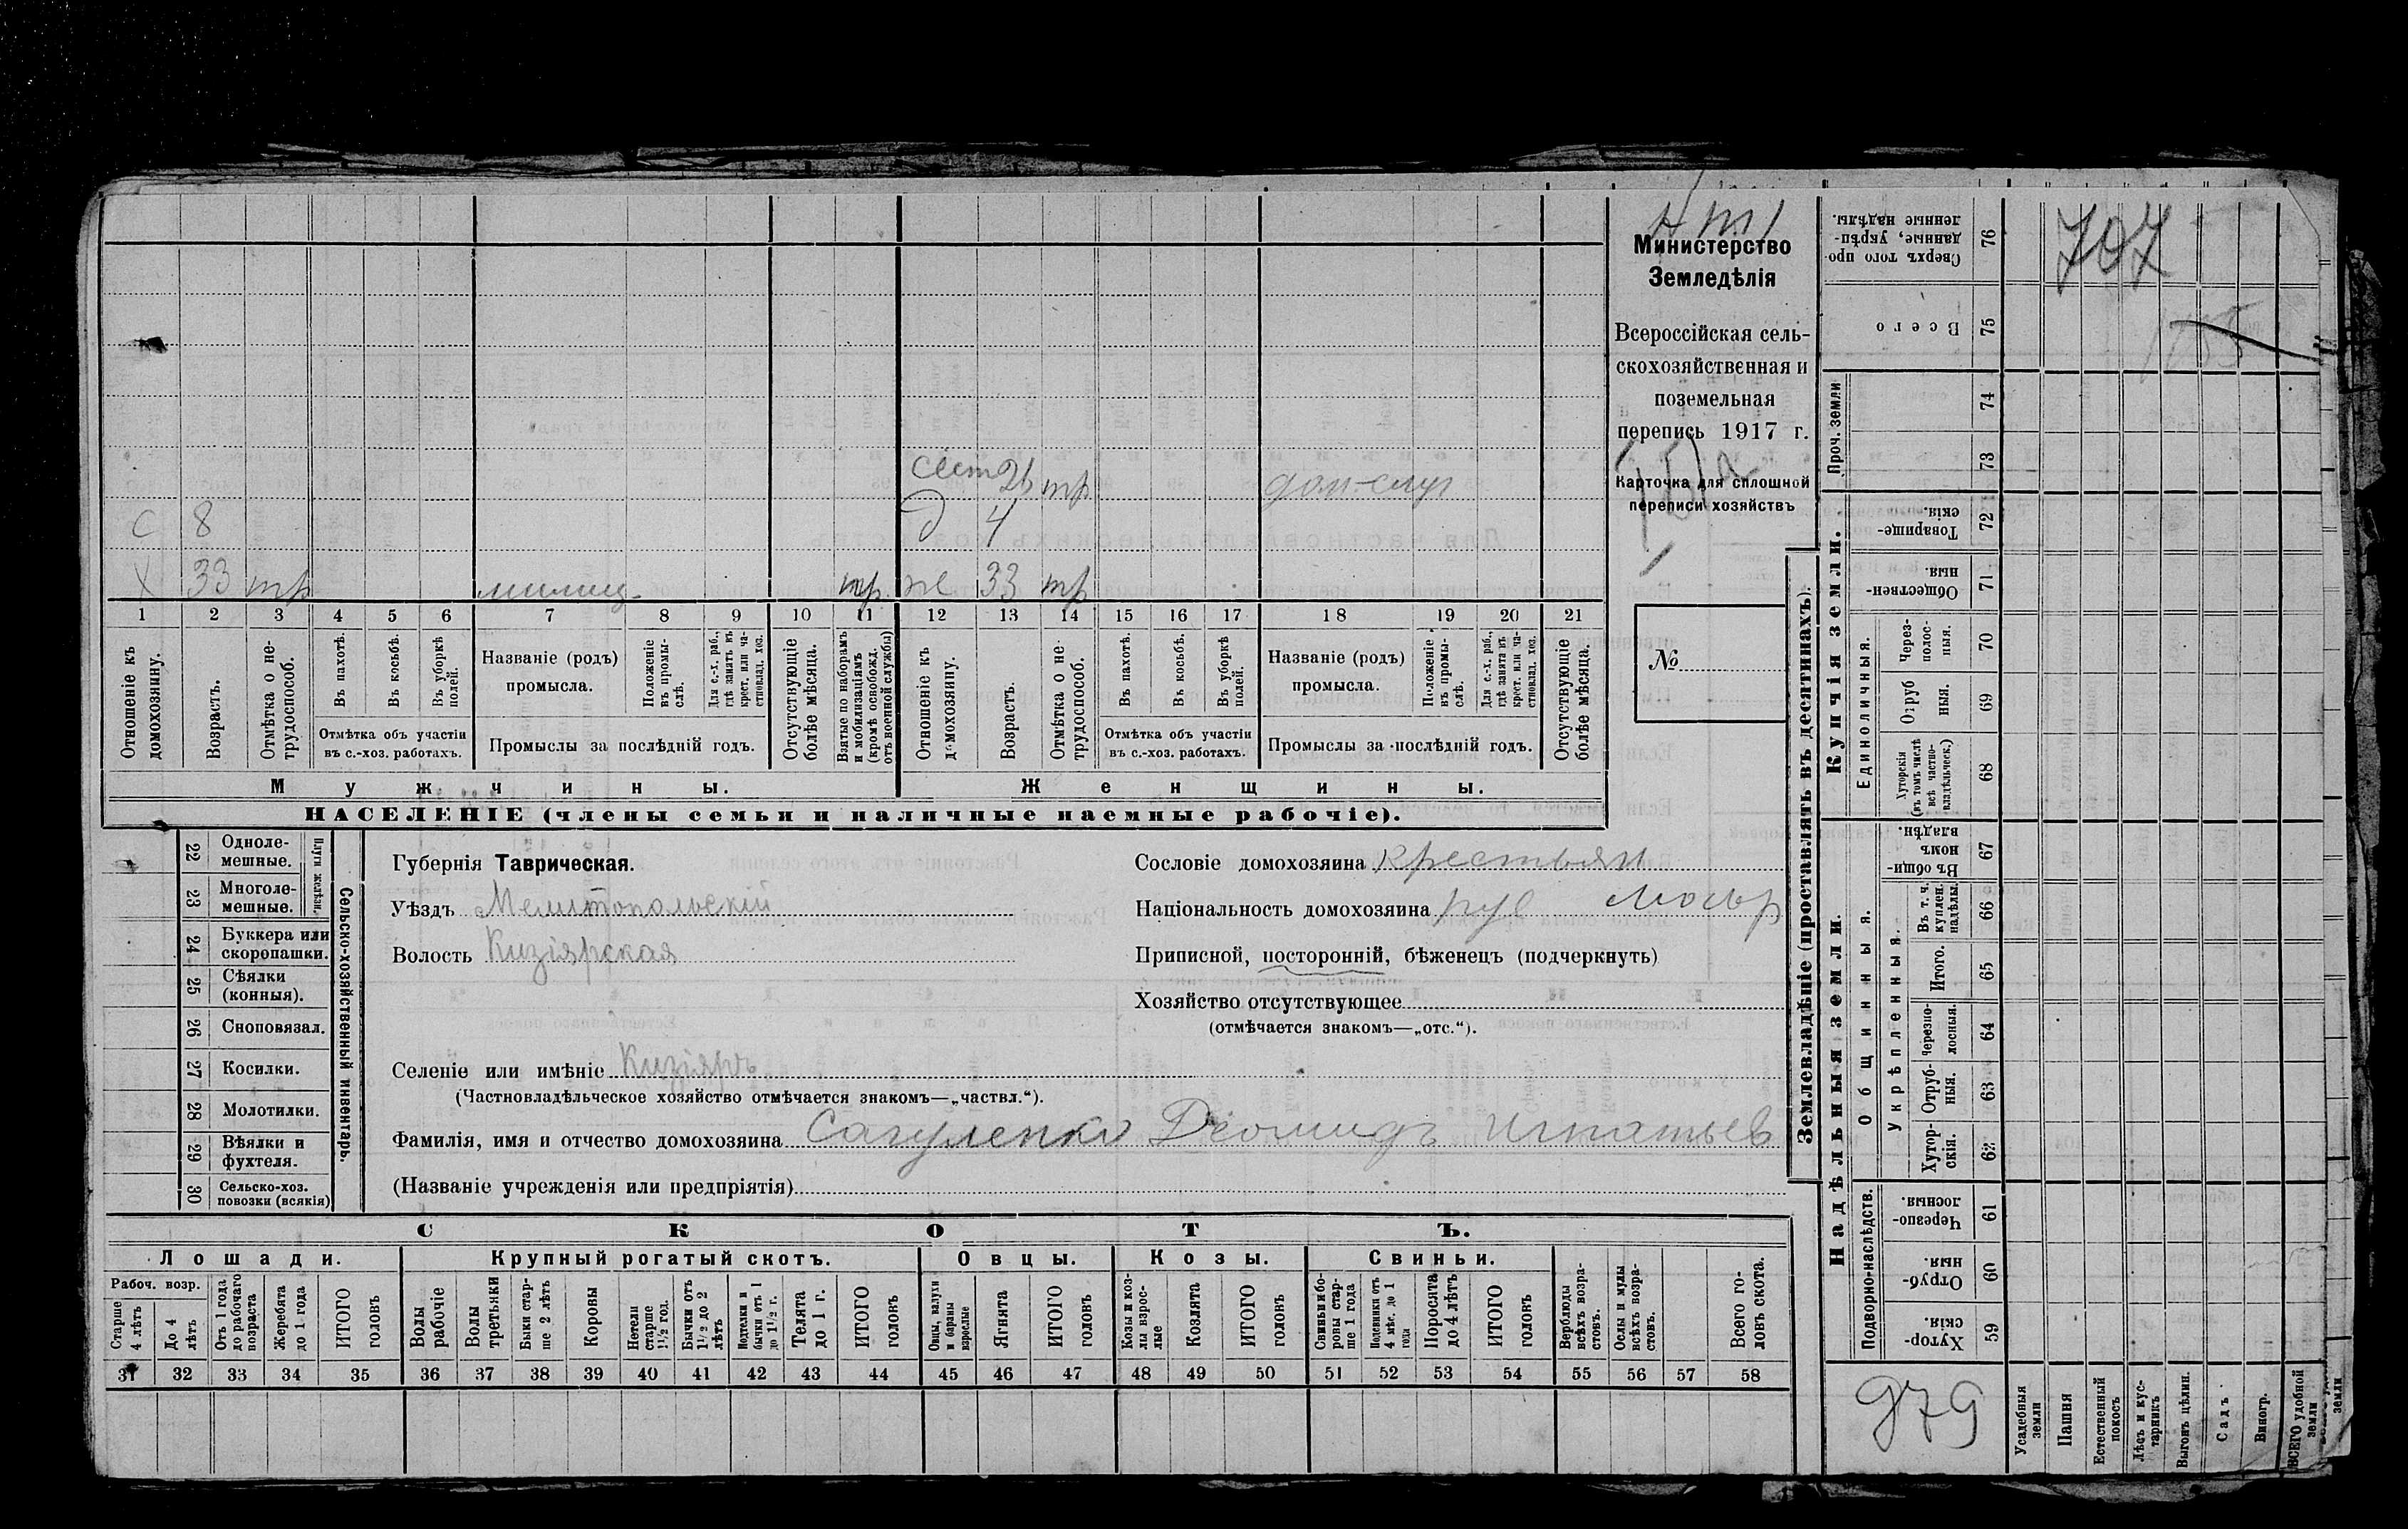 Министерство
Земледѣлія
Всероссійская сель-
скохозяйственная и
поземельная
перепись 1917 г.
Карточка для сплошной
переписи хозяйствъ
№
сест 26 тр дом-слуг
с 8 д 4
х 33 тр милиц. тр. ж 33 тр
1 2 3 4 5 6 7 8 9 10 11 12 13 14 15 16 17 18 19 20 21
Отношеніе къ домохозяину.
Возрастъ.
Отмѣтка о не-трудоспособ.
Въ пахотѣ.
Въ косьбѣ.
Въ уборкѣ полей.
Отмѣтка объ участіи
въ с.-хоз. работахъ.
Названіе (родъ)
промысла.
Положеніе въ промы-слѣ.
Для с.-х. раб., гдѣ занятъ въ крест. или ча-стновлад. хоз.
Промыслы за послѣдній годъ.
Отсутствующіе болѣе мѣсяца.
Взятые по наборамъ и мобилизаціямъ (кромѣ освобожд. отъ военной службы)
Отношеніе къ домохозяину.
Возрастъ.
Отмѣтка о не-трудоспособ.
Въ пахотѣ.
Въ косьбѣ.
Въ уборкѣ полей.
Отмѣтка объ участіи
въ с.-хоз. работахъ.
Названіе (родъ)
промысла.
Положеніе въ промы-слѣ.
Для с.-х. раб., гдѣ занята въ крест. или ча-стновлад. хоз.
Промыслы за послѣдній годъ.
Отсутствующіе болѣе мѣсяца.
Мужчины. Женщины.
НАСЕЛЕНІЕ (члены семьи и наличные наемные рабочіе).
22 Одноле-мешные.
23 Многоле-мешные.
Плуги желѣзн.
24 Буккера или скоропашки.
25 Сѣялки (конныя).
26 Сноповязал.
27 Косилки.
28 Молотилки.
29 Вѣялки и фухтеля.
30 Сельско-хоз. повозки (всякія)
Сельско-хозяйственный инвентарь.
Губернія Таврическая.
Уѣздъ Мелитопольскій
Волость Кизіярская
Сословіе домохозяина крестьян
Національность домохозяина рус малор
Приписной, посторонній, бѣженецъ (подчеркнуть)
Хозяйство отсутствующее
(отмѣчается знакомъ—„отс.“).
Селеніе или имѣніе Кизіяръ
(Частновладѣльческое хозяйство отмѣчается знакомъ—„частвл.“).
Фамилія, имя и отчество домохозяина Сагуленко Діомидъ Игнатьев
(Названіе учрежденія или предпріятія)
СКОТЪ.
Лошади. Крупный рогатый скотъ. Овцы. Козы. Свиньи.
Рабоч. возр.
Старше 4 лѣтъ
До 4 лѣтъ
Отъ 1 года до рабочаго возраста
Жеребята до 1 года
ИТОГО головъ
Волы рабочіе
Волы третьяки
Быки стар-ше 2 лѣтъ
Коровы
Нетели старше 1½ год.
Бычки отъ 1½ до 2 лѣтъ
Подтелки и бычки отъ 1 до 1½ г.
Телята до 1 г.
ИТОГО головъ
Овцы, валухи и бараны взрослые
Ягнята
ИТОГО головъ
Козы и коз-лы взрос-лые
Козлята
ИТОГО головъ
Свиньи и бо-ровы стар-ше 1 года
Подсвинки отъ 4 мѣс. до 1 года
Поросята до 4 лѣтъ
ИТОГО головъ
Верблюды всѣхъ возра-стовъ.
Ослы и мулы всѣхъ возра-стовъ.
Всего го-ловъ скота.
31 32 33 34 35 36 37 38 39 40 41 42 43 44 45 46 47 48 49 50 51 52 53 54 55 56 57 58
Землевладѣніе (проставлять въ десятинахъ).
Надѣльныя земли. Купчія земли. Проч. земли
Подворно-наслѣдств.
Общинныя.
Укрѣпленныя.
Единоличныя.
Сверхъ того про-данные, укрѣп-ленные надѣлы. 76
Всего 75
74
73
Товарище-скія. 72
Обществен-ныя. 71
Через-полос-ныя. 70
Отруб ныя. 69
Хуторскія (въ томъ числѣ всѣ частно-владѣльческ.) 68
Въ общи-номъ владѣн. 67
Въ т. ч. куплен. надѣлы. 66
Итого. 65
Черезпо-лосныя. 64
Отруб-ныя. 63
Хутор-скія. 62
Черезпо-лосныя. 61
Отруб-ныя. 60
Хутор-скія. 59
707
979
Усадебныя земли
Пашня
Естественный покосъ
Лѣсъ и кус-тарникъ
Выгонъ цѣлин.
Садъ
Виногр.
ВСЕГО удобной земли